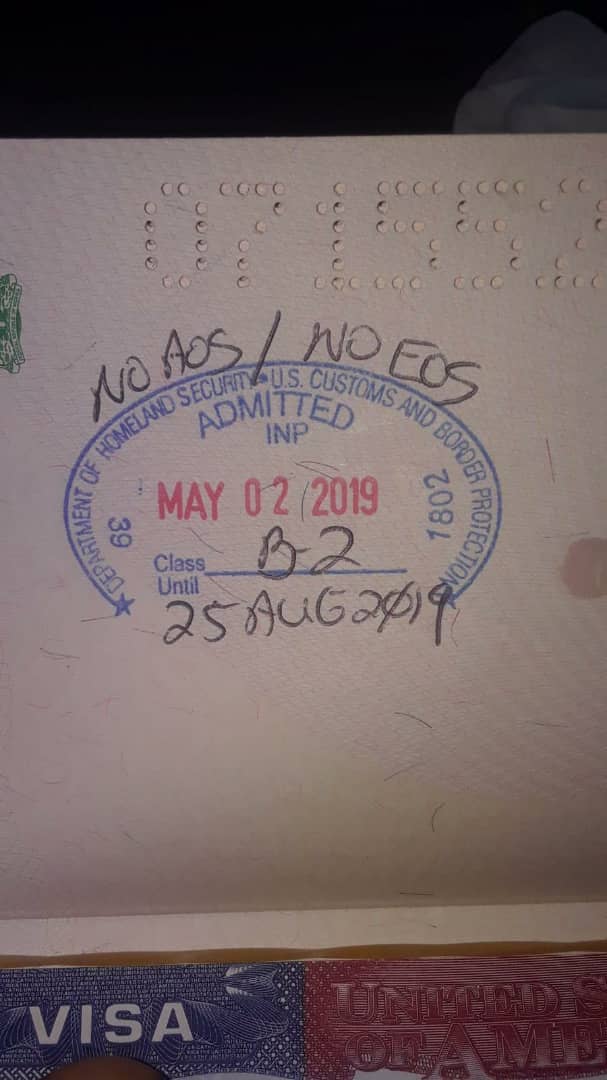 NO AOS / NO EOS
DEPARTMENT OF HOMELAND SECURITY • U.S. CUSTOMS AND BORDER PROTECTION
ADMITTED
INP
MAY 02 2019
39
1802
Class B-2
Until
25 AUG 2019
VISA
UNITED S
OF AME